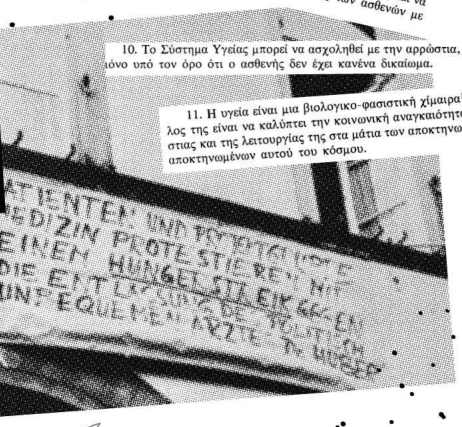 των ασθενών με
10. Το Σύστημα Υγείας μπορεί να ασχοληθεί με την αρρώστια,
όνο υπό τον όρο ότι ο ασθενής δεν έχει κανένα δικαίωμα.
11. Η υγεία είναι μια βιολογικο-φασιστική χίμαιρα
λος της είναι να καλύπτει την κοινωνική αναγκαιότητ
στιας και της λειτουργίας της στα μάτια των αποκτηνω
αποκτηνωμένων αυτού του κόσμου.
ATIENTEN UND
EDIZIN PROTESTIEREN MIT
EINEM HUNGERSTREIK GEGEN
DIE ENTLASSUNG DE POLITISCH
UNBEQUEMEN ARZTE HUBER